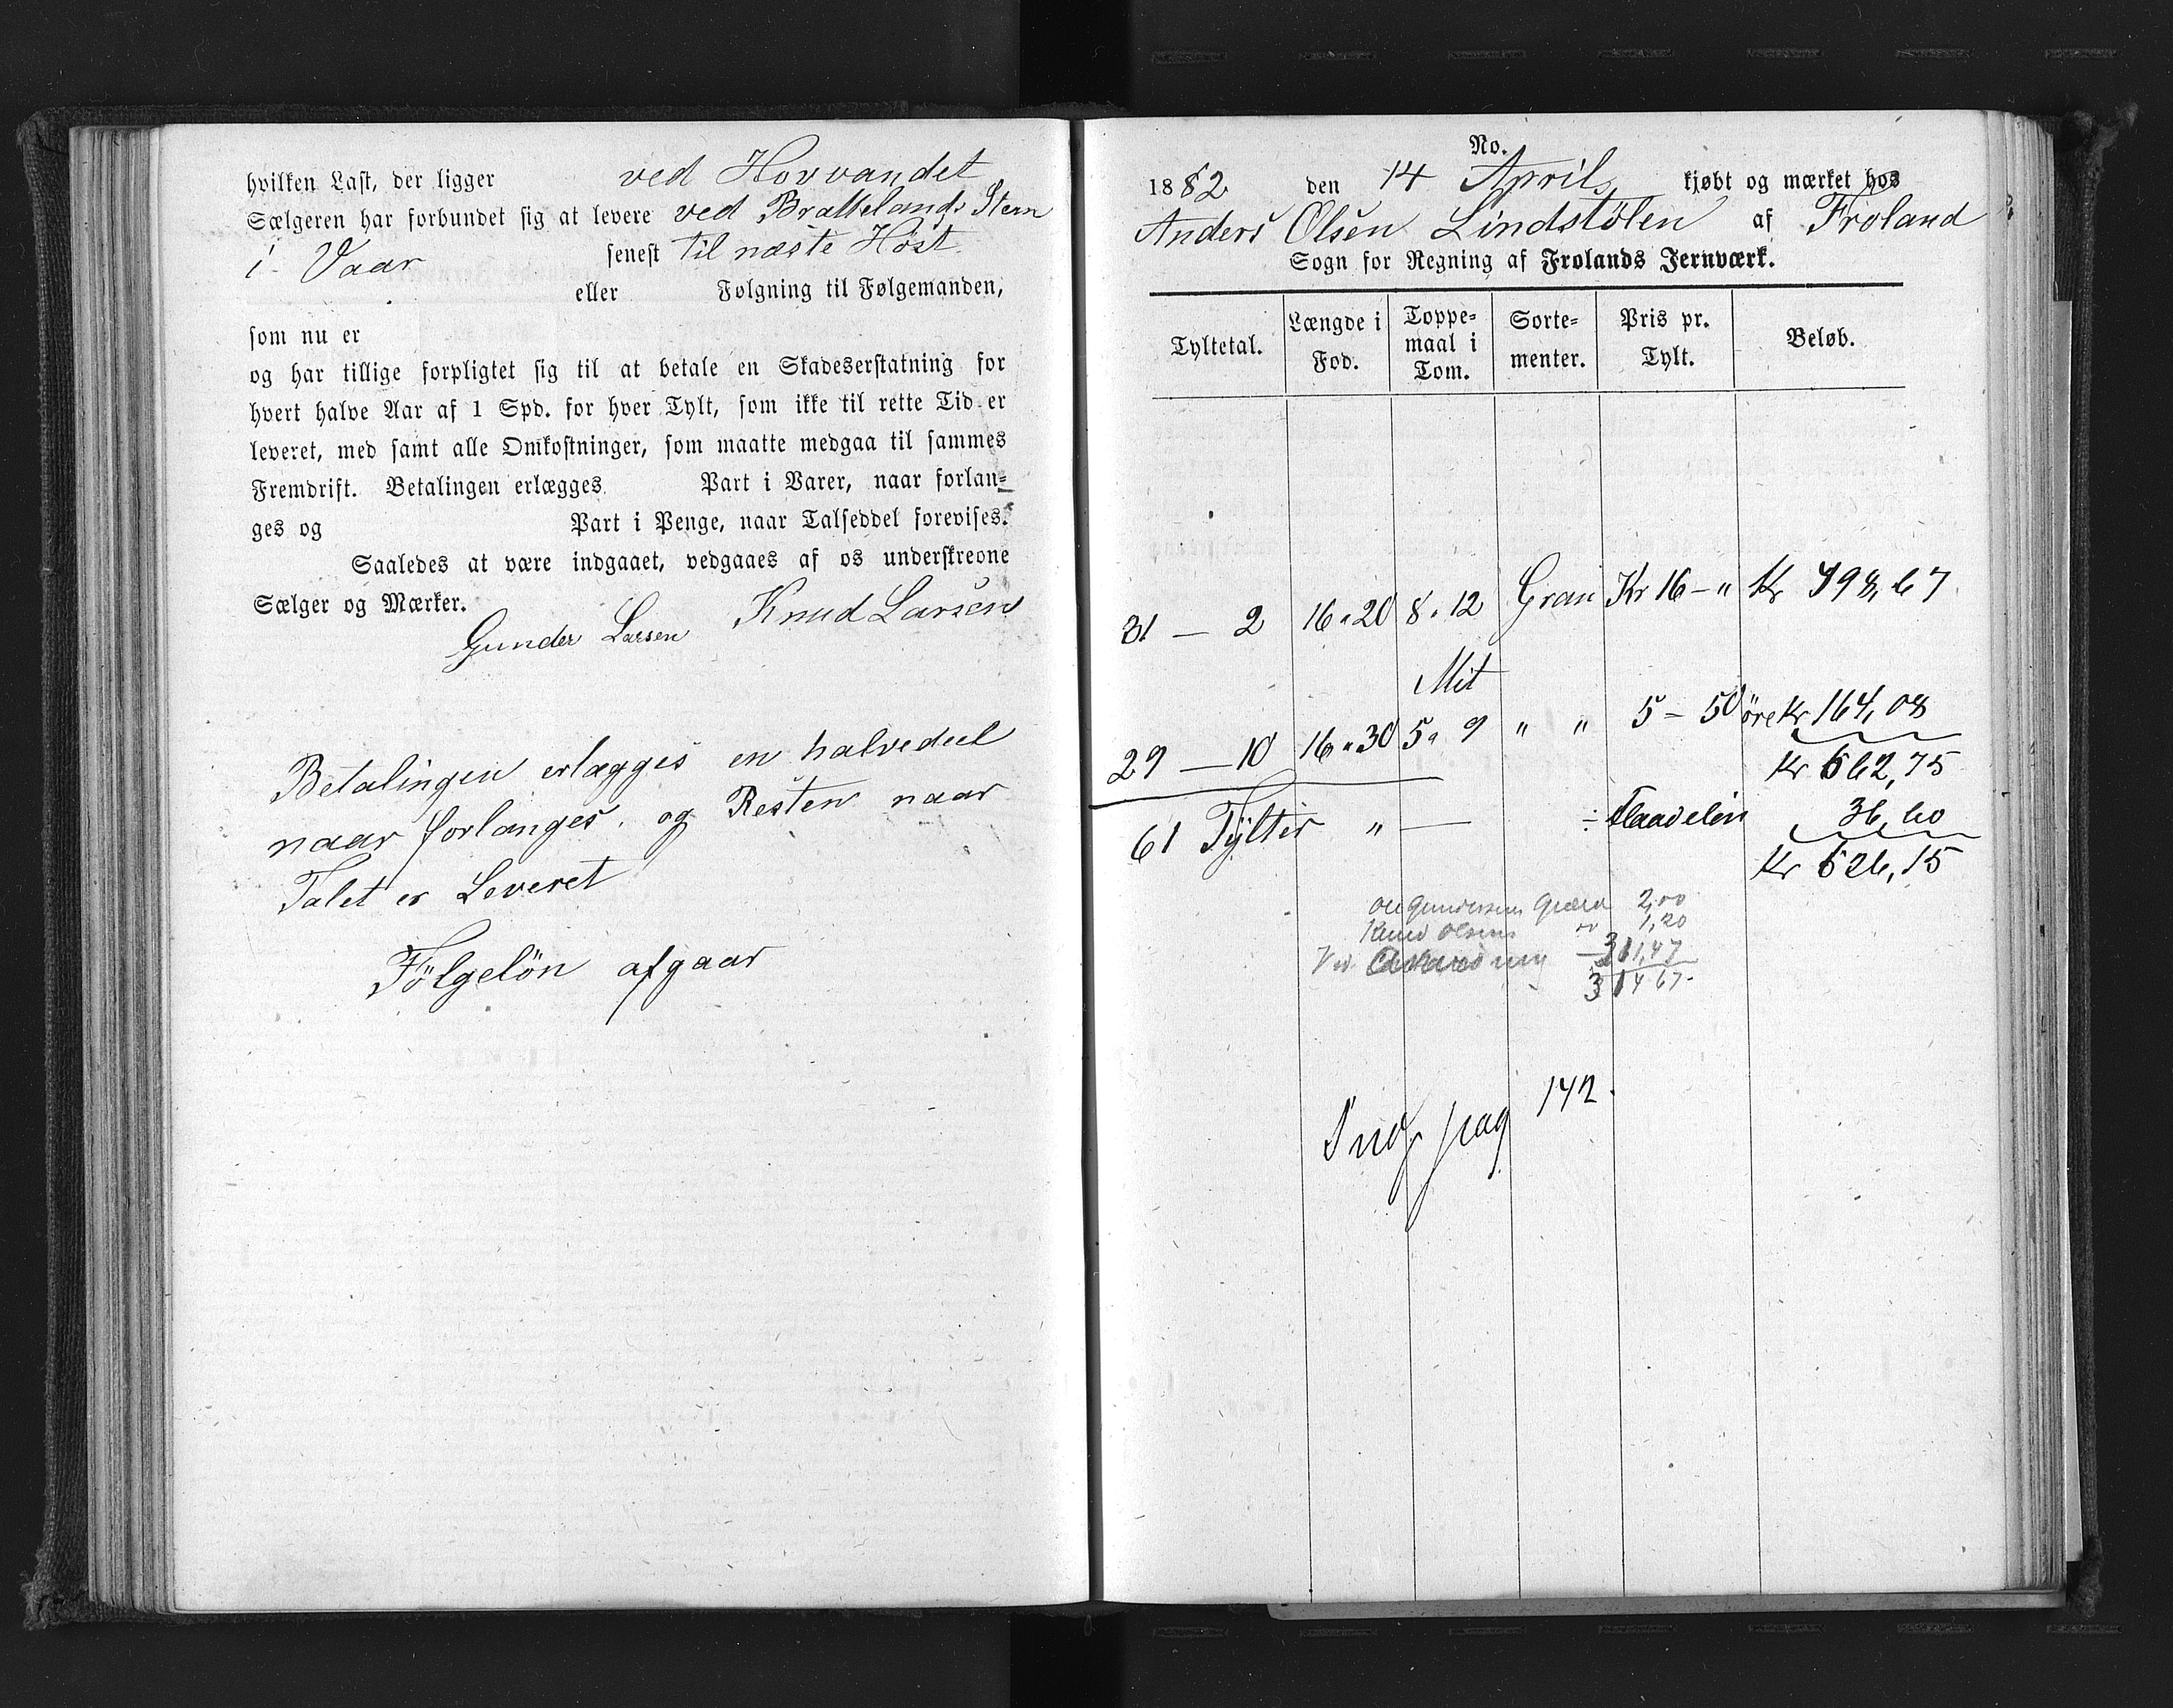 hvilken Last, der ligger ved Hovvandet
Sælgeren har forbundet sig at levere ved Brattelands Stem
i Vaar senest til næste Høst
eller Følgning til Følgemanden,
som nu er
og har tillige forpligtet sig til at betale en Skadeserstatning for
hvert halve Aar af 1 Spd. for hver Tylt, som ikke til rette Tid er
leveret, med samt alle Omkostninger, som maatte medgaa til sammes
Fremdrift. Betalingen erlægges Part i Varer, naar forlan-
ges og Part i Penge, naar Talseddel forevises.
Saaledes at være indgaaet, vedgaaes af os underskrevne
Sælger og Mærker.
Gunder Larsen Knud Larsen
Betalingen erlægges en halvedeel
naar forlanges. og Resten naar
Talet er Leveret
Følgeløn afgaar
No.
1882 den 14 April kjøbt og mærket hos
Anders Olsen Lindstølen af Froland
Sogn for Regning af Frolands Jernværk.
Tyltetal. Længde i Fod. Toppe-maal i Tom. Sorte-menter. Pris pr. Tylt. Beløb.
31 — 2 16 " 20 8 " 12 Gran Kr 16 – " Kr 498,67
Mit
29 — 10 16 " 30 5 " 9 " " 5 – 50 øre Kr 164,08
Kr 662,75
61 Tylter " — ÷ Flaadeløn 36,60
Kr 626,15
Ole Gundersen 2,00
Knud Olsen " 1,20
311,47
314 67
Ind pag 142.